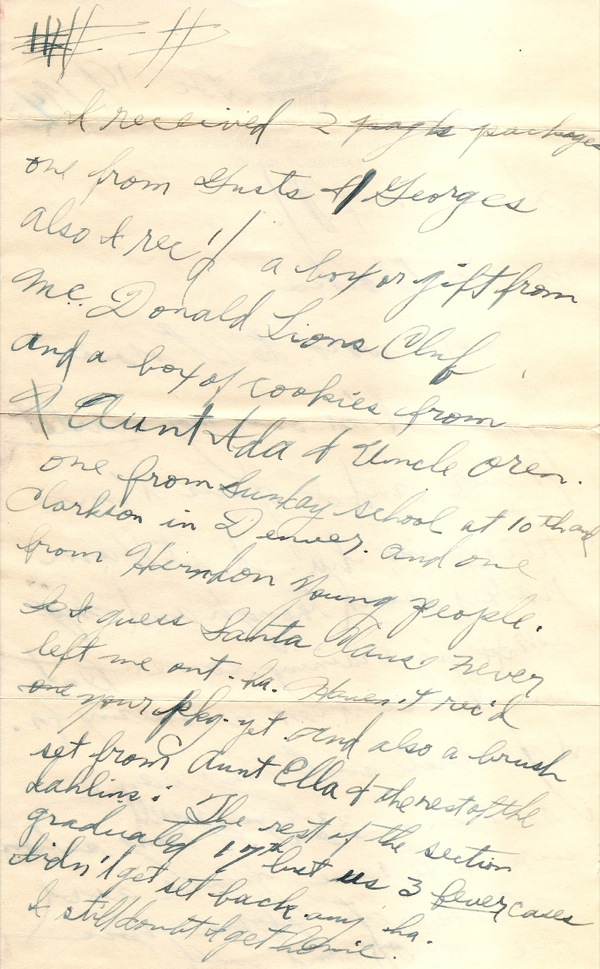 I received 2 pagks packages
one from Gusts & Georges
also I rec'd a box or gift from
Mc. Donald Lions Cluf
and a box of cookies from
Aunt Ada & Uncle Oren.
one from Sunday school at 10th and
Clarkson in Denver. and one
from Herndon young people.
I guess Santa Klause never
left me out. ha. Haven't rec'd
one your pkg. yet and also a brush
set from Aunt Ella & the rest of the
dahlins. The rest of the section
graduated 17th but us 3 fever cases
didn't get set back any ha.
I still doubt I get home.